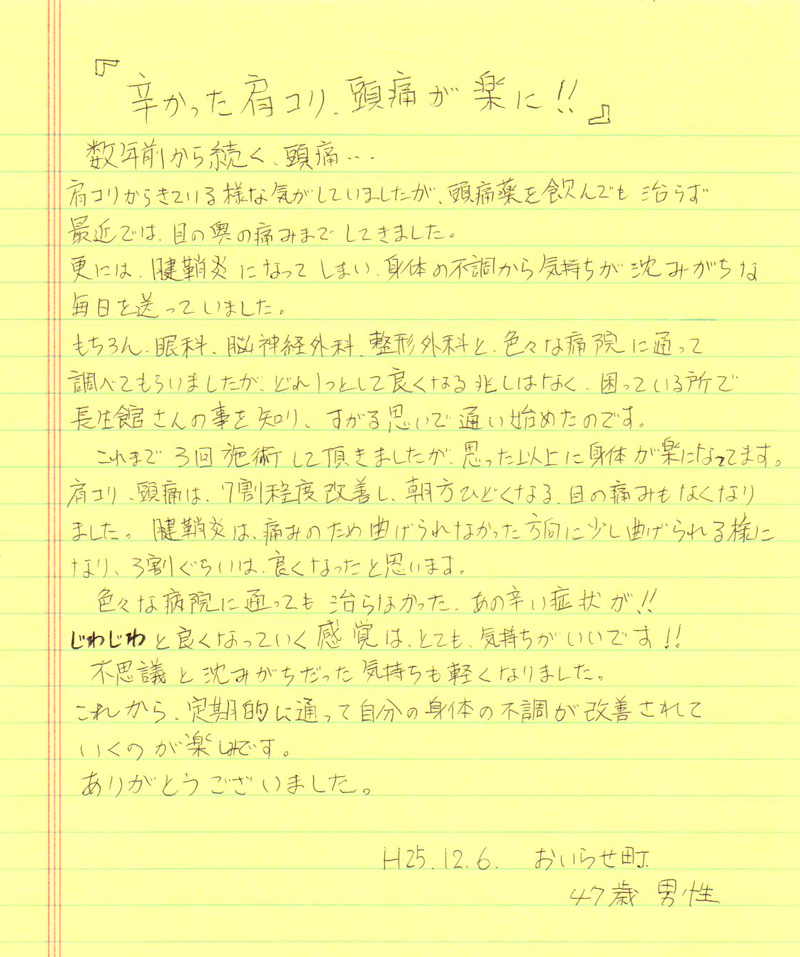 『辛かった肩コリ、頭痛が楽に!!』
数年前から続く、頭痛・・・
肩コリからきている様な気がしていましたが、頭痛薬を飲んでも治らず
最近では、目の奥の痛みまでしてきました。
更には、腱鞘炎になってしまい、身体の不調から気持ちが沈みがちな
毎日を送っていました。
もちろん、眼科、脳神経外科、整形外科と、色々な病院に通って
調べてもらいましたが、どれ1つとして良くなる兆しはなく、困っている所で
長生館さんの事を知り、すがる思いで通い始めたのです。
これまで3回施術して頂きましたが、思った以上に身体が楽になってます。
肩コリ、頭痛は、7割程度改善し、朝方ひどくなる、目の痛みもなくなり
ました。腱鞘炎は、痛みのため曲げられなかった方向に少し曲げられる様に
なり、3割ぐらいは、良くなったと思います。
色々な病院に通っても治らなかった、あの辛い症状が!!
じわじわと良くなっていく感覚は、とても、気持ちがいいです!!
不思議と沈みがちだった気持ちも軽くなりました。
これから、定期的に通って自分の身体の不調が改善されて
いくのが楽しみです。
ありがとうございました。
H25.12.6. おいらせ町
47歳 男性